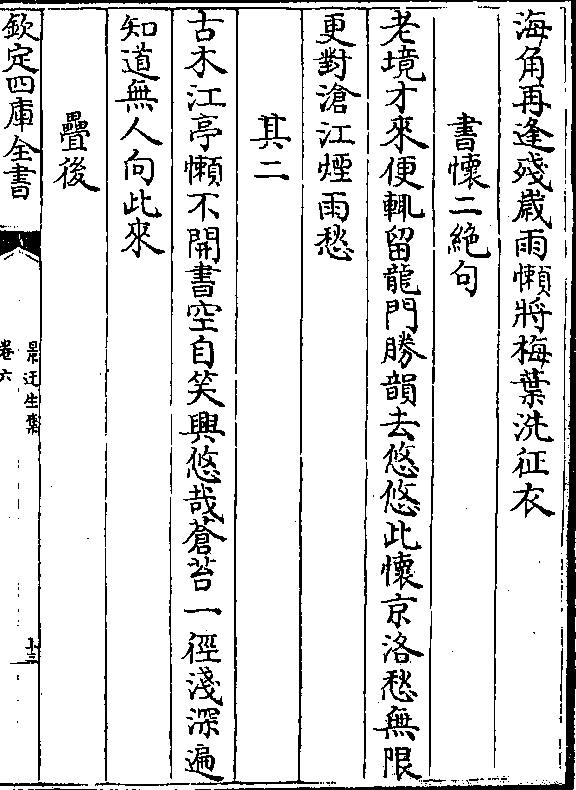 海角再逢殘歲雨懶將梅葉洗征衣
書懷二絶句
老境才來便輒留龍門勝韻去悠悠此懷京洛愁無限
更對滄江煙雨愁
其二
古木江亭懶不開書空自笑興悠哉蒼苔一徑淺深遍
知道無人向此來
疊後
欽定四庫全書
景迂生集
卷六
十三